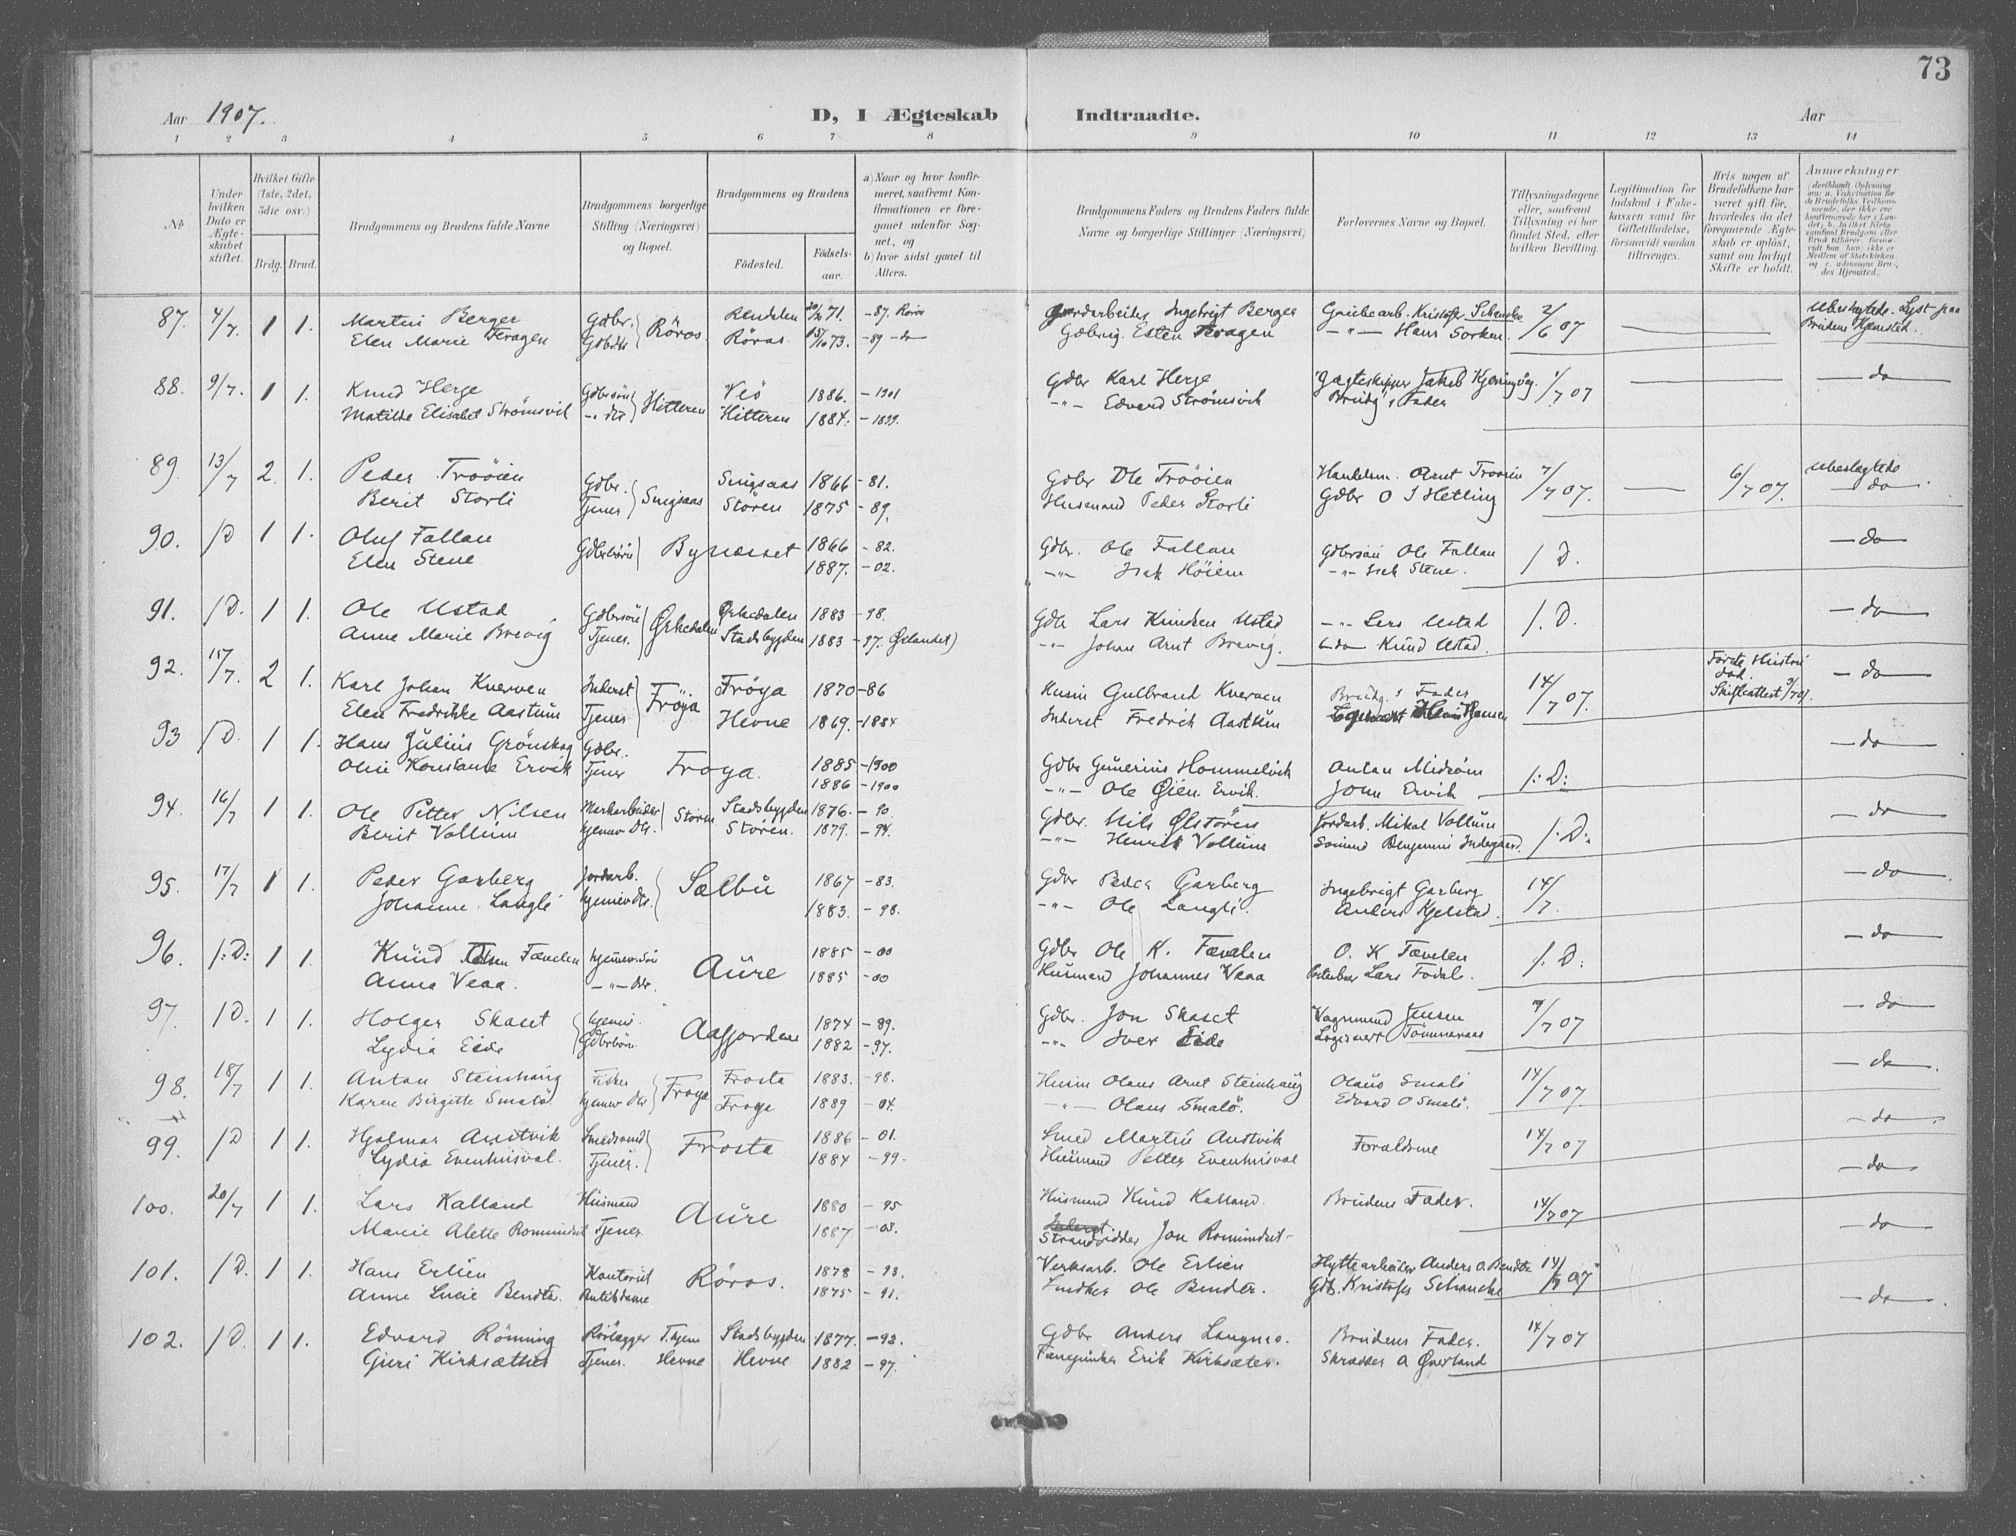 73
Aar 1907. D, I Ægteskab Indtraadte. Aar
1 2 3 4 5 6 7 8 9 10 11 12 13 14
No
Under hvilken Dato er Ægteskabet stiftet.
Hvilket Gifte (1ste, 2det, 3die osv.)
Brdg. Brud.
Brudgommens og Brudens fulde Navne
Brudgommens borgerlige Stilling (Næringsvei) og Bopæl.
Brudgommens og Brudens
Fødested. Fødselsaar.
a) Naar og hvor konfirmeret, saafremt Konfirmationen er foregaaet udenfor Sognet, og
b) hvor sidst gaaet til Alters.
Brudgommens Faders og Brudens Faders fulde Navne og borgerlige Stillinger (Næringsvei)
Forlovernes Navne og Bopæl.
Tillysningsdagene eller, saafremt Tillysning ei har fundet Sted, efter hvilken Bevilling.
Legitimation for Indskud i Enkekassen samt for Giftetilladelse, forsaavidt saadan tiltrænges.
Hvis nogen af Brudefolkene har været gift før, hvorledes da det foregaaende Ægteskab er opløst, samt om lovligt Skifte er holdt.
Anmærkninger
87. 4/7. 1 1. Martin Berger Gdbr. Röros. Rendalen 71. -87. Röros Ingebrigt Berger Kristofer Schancke 2/6 07
Elen Marie Feragen Gdbdtr Röros 73. -89 -do Gdbrug. Esten Feragen -"- Hans Sorken. Brudens Hjemsted.
88. 9/7. 1 1. Knud Herge Gdbrsön Hitteren Veö 1886. -1901 Gdbr Karl Herge Jagteskipper Jakob 1/7 07 -do-
Matilde Elisabet Strömsvik -"- dtr Hitteren 1884. -1899. -"- Edvard Strömsvik Brudg's Fader
89. 13/7 2. 1. Peder Troöien Gdbr. Singsaas Singsaas 1866 -81. Gdbr Ole Troöien Handelsm. Arnt Troöien 7/7 07. 6/7 07. Ubeslægtede
Berit Storli Tjener Stören 1875 -89. Husmand Peder Storli Gdbr O J Hetling -do-
90. /D 1 1. Oluf Fallan Gdbrbörn Bynesset 1866 -82. Gdbr. Ole Fallan Gdbrsön Ole Fallan /. D. -do
Elen Stene 1887. -02. -"- Isak Höiem -"- Isak Stene.
91. /D. 1 1. Ole Ustad Gdbrsön Ørkedalen Ørkedalen 1883 -98. Gdb Lars Knudsen Ustad -"- Lars Ustad /. D. -do
Anne Marie Brevig Tjener. Stadsbygden 1883 -97. Ørlandet) -"- Johan Arnt Brevig. -do Knud Ustad.
92. 15/7. 2 1. Karl Johan Kverven Inderst Fröya. Fröya 1870 -86 Husm Gulbrand Kverven Brudg.s Fader 14/7 07. Förste Hustru död. Skifteattest -do-
Elen Fredrikke Aastum Tjener Hevne 1869. -1884 Inderst Fredrik Aastum
93 /D. 1 1. Hans Julius Grönskag Gdbr. Fröya. 1885 -1900 Gdbr Gunerius Hommelvik Anton Midsöm /: D: -do
Oline Konstanse Ervik Tjener 1886 -1900 -"- Ole Øien Ervik. John Ervik
94. 16/7 1 1. Ole Petter Nilsen Stören Stadsbygden 1876. -90. Gdbr. Nils Ølstören Jordarb. Mikal Vollum /: D: -do
Berit Vollum hjemev Dtr. Stören. 1879. -94. -"- Henrik Vollum
95. 17/7 1 1. Peder Garberg Jordarb. Sælbu 1867 -83. Gdbr Peder Garberg Ingebrigt Garberg 14/7. -do
Johanne Langli hjemev Dtr. 1883. -98. -"- Ole Langli. Anders Kjelstad.
96. /:D: 1 1. Knud Olsen Fævelen hjemev. Sön Aure 1885 -00 Gdbr Ole K. Fævelen O. K Fævelen /. D: -do
Anna Veaa. -"- Dtr. 1885 -00 Husmand Johannes Veaa Lars Todal.
97. /D. 1 1. Holger Skaset hjemev. Aafjorden 1874 -89. Gdbr. Jon Skaset Vognmand Jensen 9/7 07 -do
Lydia Eide Gdbrbörn. 1882 -97. -"- Iver Eide
98. 18/7 1 1. Anton Steinhaug Fisker Froya Frosta 1883. -98. Husm Olaus Arnt Steinhaug Olaus Smalö 14/7 07 -do
Karen Birgitte Smalö hjemev Dtr Froya 1889 -04. -"- Olaus Smalö. Edvard O Smalö.
99. /D 1 1. Hjalmar Austvik Smedsvend Frosta 1886 -01. Smed Martin Austvik Forældrene 14/7 07 -do
Lydia Evenhusval. Tjener. 1884 -99- Husmand Petter Evenhusval
100. 20/7 1 1. Lars Kalland Husmand Aure 1880 -95 Husmand Knud Kalland Brudens Fader. 14/7 07 -do
Marie Alette Romundset Tjener. 1887 -03. Strandsidder Jon Romundset-
101. /D. 1 1. Hans Erlien Kontorist Röros. 1878 -93. Verksarb. Ole Erlien Hyttearbeider Anders O. Bendtz 14/7 07 -do
Anne Lucie Bendtz. 1875 -91. Snedker Ole Bendtz. Gdb. Kristofer Schancke
102. /D. 1 1. Edvard Rönning Rörlægger T.hjem Stadsbygden 1877. -92. Gdbr Anders Langmo. Brudens Fader. 14/7 07 -do
Guri Kirksæther Tjener. Hevne Hevne 1882 -97. Fanejunker Erik Kirksæter. Skrædder A Øverland